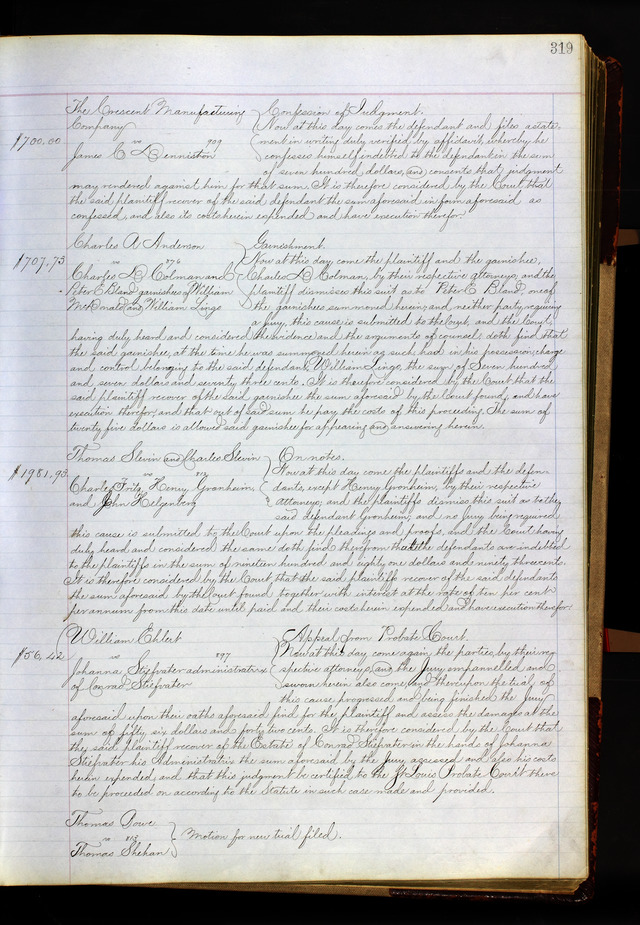 319
The Crescent Manufacturing Confession of Judgment.
Company Now at this day comes the defendant and files a state-
$700.00 vs 909 ment in writing duly verified by affidavit, whereby he
James C Denniston confesses himself indebted to the defendant in the sum
of seven hundred dollars, and consents that judgment
may rendered against him for that sum. It is therefore considered by the Court that
the said plaintiff recover of the said defendant the sum aforesaid in form aforesaid as
confessed, and also its costs herein expended and have execution therefor.
Charles A Anderson Garnishment
$707.73 vs 876 Now at this day come the plaintiff and the garnishee,
Charles D Colman and Charles D Colman, by their respective attorneys, and the
Peter E Bland garnishees of William plaintiff dismisses this suit as to Peter E Bland one of
McDonald and William Lingo the garnishees summoned herein, and neither party requiring
a jury, this cause is submitted to the Court, and the Court,
having duly heard and considered the evidence and the arguments of counsel, doth find that
the said garnishee, at the time he was summoned herein as such had in his possession, charge
and control belonging to the said defendant, William Lingo, the sum of Seven hundred
and seven dollars and seventy three cents. It is therefore considered by the Court that the
said plaintiff recover of the said garnishee the sum aforesaid by the Court found, and have
execution therefor, and that out of said sum he pay the costs of this proceeding. The sum of
twenty five dollars is allowed said garnishee for appearing and answering herein.
Thomas Slevin and Charles Slevin On notes.
$1981.93 vs 812 Now at this day come the plaintiffs and the defen-
Charles Fritz, Henry Gronheim, dants, except Henry Gronheim, by their respective
and John Helgenberg attorneys, and the plaintiffs dismiss this suit as to the
said defendant Gronheim, and no Jury being required
this cause is submitted to the Court upon the pleadings and proofs, and the Court having
duly heard and considered the same doth find therefrom that the defendants are indebted
to the plaintiffs in the sum of nineteen hundred and eighty one dollars and ninety three cents.
It is therefore considered by the Court, that the said plaintiffs recover of the said defendants
the sum aforesaid by the Court found together with interest at the rate of ten per cent
per annum from this date until paid and their costs herein expended, and have execution therefor.
William Ehlert Appeal from Probate Court.
$56.42 vs 897 Now at this day, come again the parties, by their re-
Johanna Stiefvater administratrix spective attorneys, and the Jury impannelled and
of Conrad Stiefvater sworn herein also come, and thereupon the trial of
this cause progressed and being finished the Jury
aforesaid upon their oaths aforesaid find for the plaintiff and assess the damages at the
sum of fifty six dollars and forty two cents. It is therefore considered by the Court that
the said plaintiff recover of the Estate of Conrad Stiefvater in the hands of Johanna
Stiefvater his Administratrix the sum aforesaid by the Jury assessed and also his costs
herein expended, and that this judgment be certified to the St Louis Probate Court there
to be proceeded on according to the Statute in such case made and provided.
Thomas Dowe
vs 813 Motion for new trial filed.
Thomas Shehan